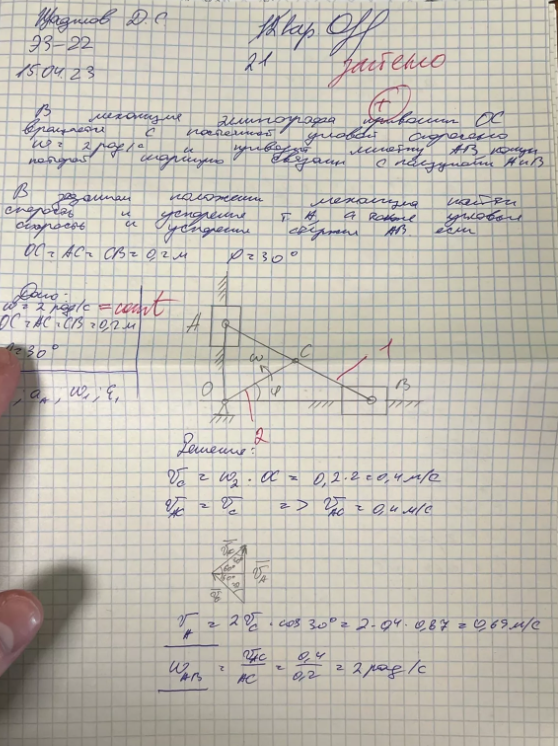 Д.С.
ЭЗ-22
15.04.23
21
зачтено
+
В механизме эллипсографа кривошип OC
вращается с постоянной угловой скоростью
ω = 2 рад/с и приводит линейку AB концы
которой шарнирно связаны с ползунами A и B
В заданном положении механизма найти
скорость и ускорение т A, а также угловые
скорость и ускорение стержня AB если
OC = AC = CB = 0,2 м φ = 30°
Дано:
ω = 2 рад/с = const
OC = AC = CB = 0,2 м
= 30°
, a_A, ω_1, ε_1
A
ω
C
1
O
φ
B
2
Решение:
V_C = ω_2 · OC = 0,2 · 2 = 0,4 м/с
V_AC = V_C => V_AC = 0,4 м/с
V_A
V_A = 2V_C · cos 30° = 2 · 0,4 · 0,87 = 0,69 м/с
ω_AB = V_AC / AC = 0,4 / 0,2 = 2 рад/с